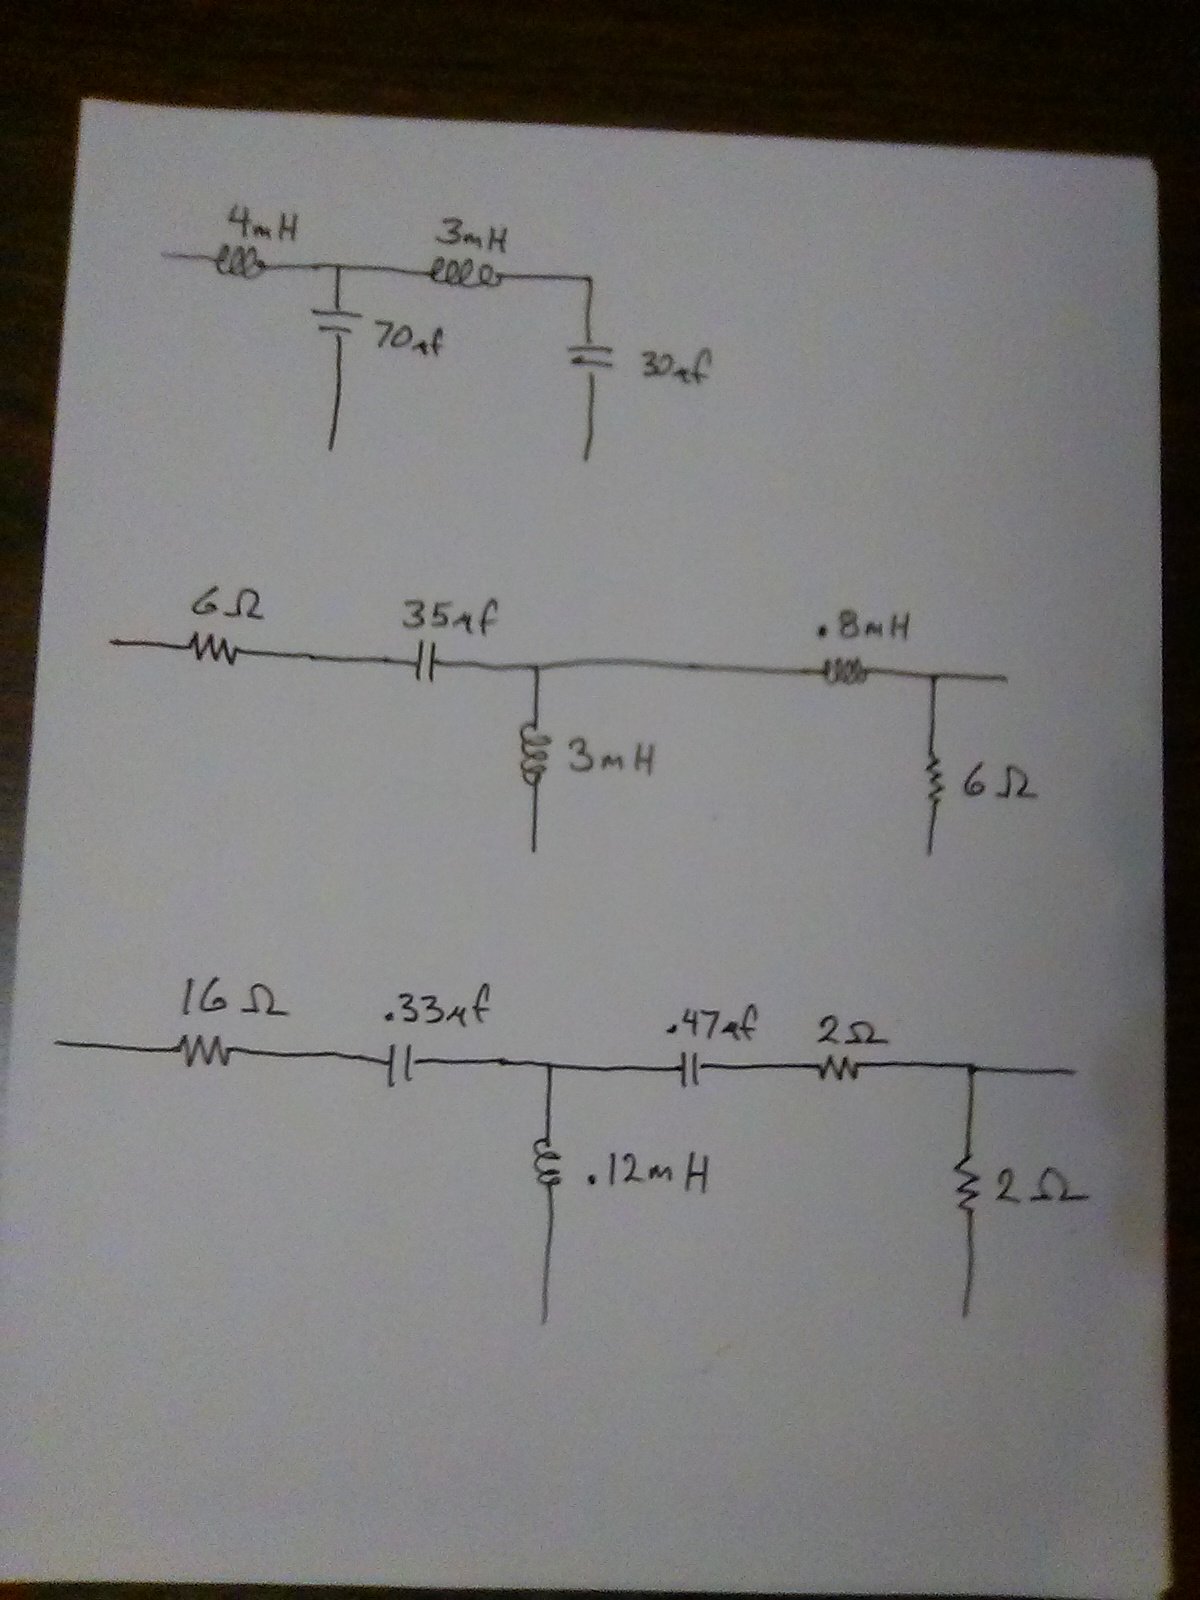 4mH 3mH
70µf 30µf
6Ω 35µf .8mH
3mH 6Ω
16Ω .33µf .47µf 2Ω
.12mH 2Ω